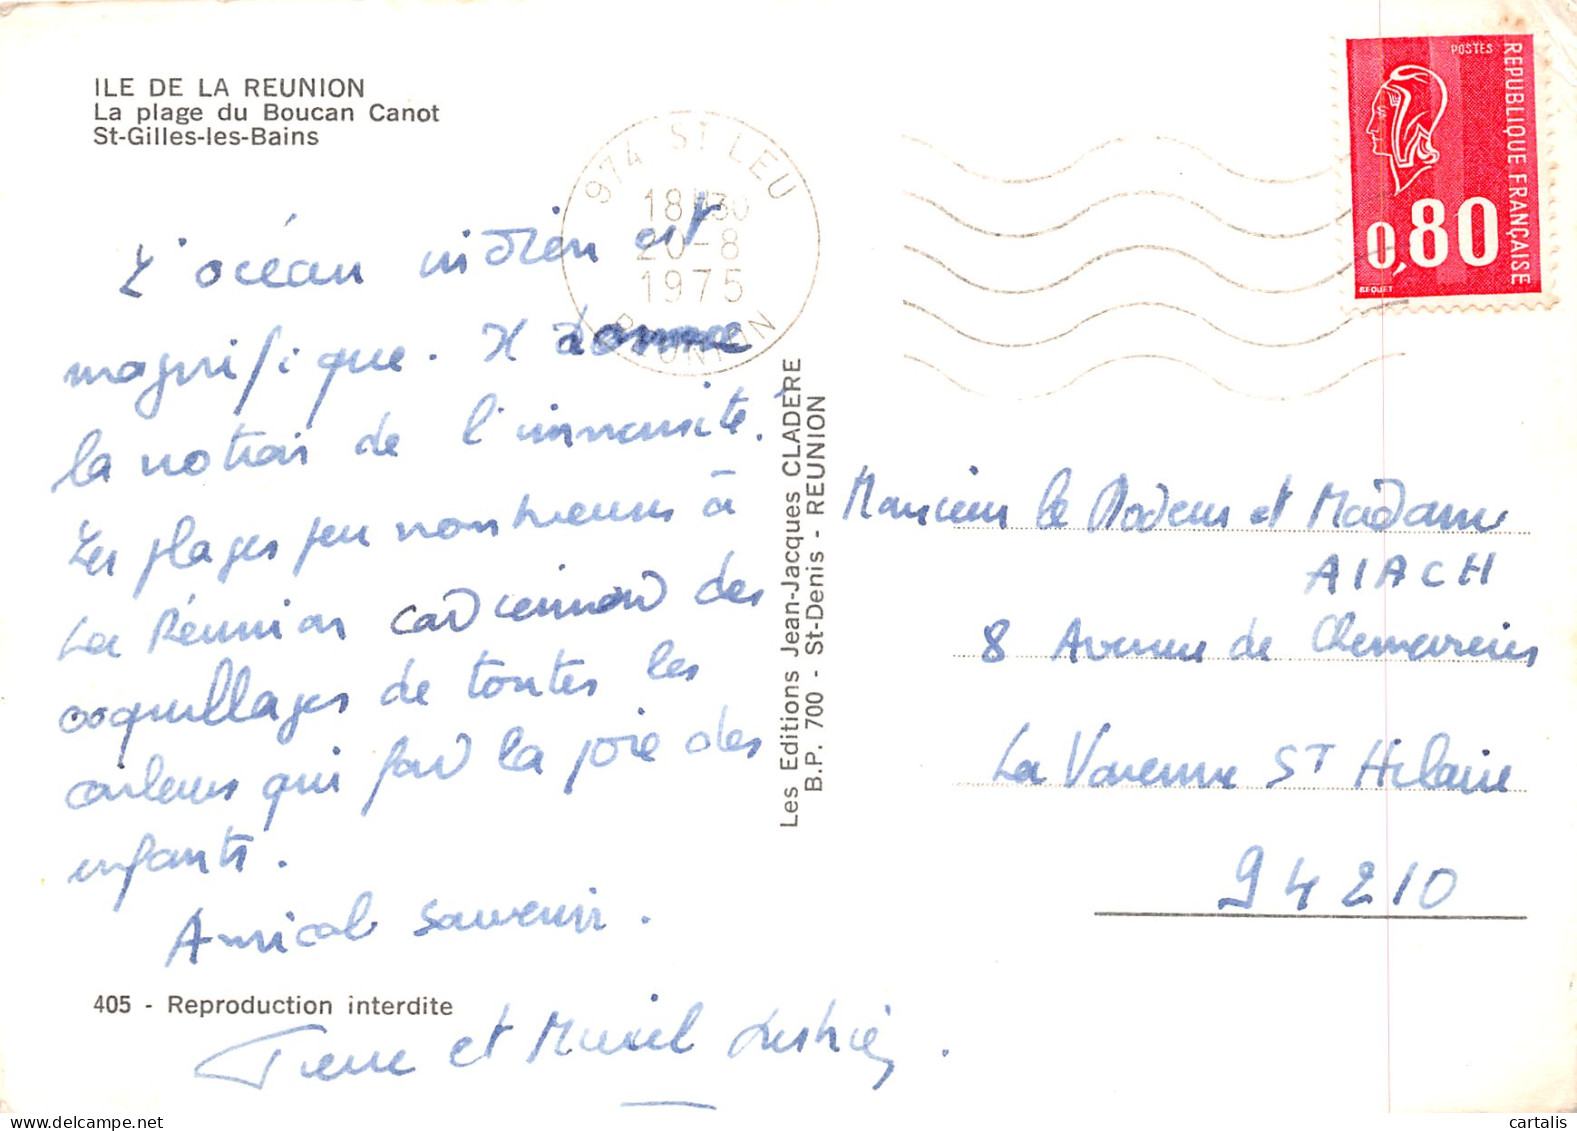 ILE DE LA REUNION
La plage du Boucan Canot
St-Gilles-les-Bains
974 ST LEU
18H30
20-8
1975
REUNION
POSTES
REPUBLIQUE FRANÇAISE
0,80
BEQUET
L'océan indien est
magnifique. Il donne
la notion de l'immensité.
Les plages peu nombreuses à
La Réunion
des
coquillages de toutes les
couleurs qui font la joie des
enfants.
Amical souvenir.
Pierre et Muriel
405 - Reproduction interdite
Les Editions Jean-Jacques CLADÈRE
B.P. 700 - St-Denis - REUNION
Monsieur le Docteur et Madame
AIACH
8 Avenue de
La Varenne ST Hilaire
94210
cartalis
delcampe.net